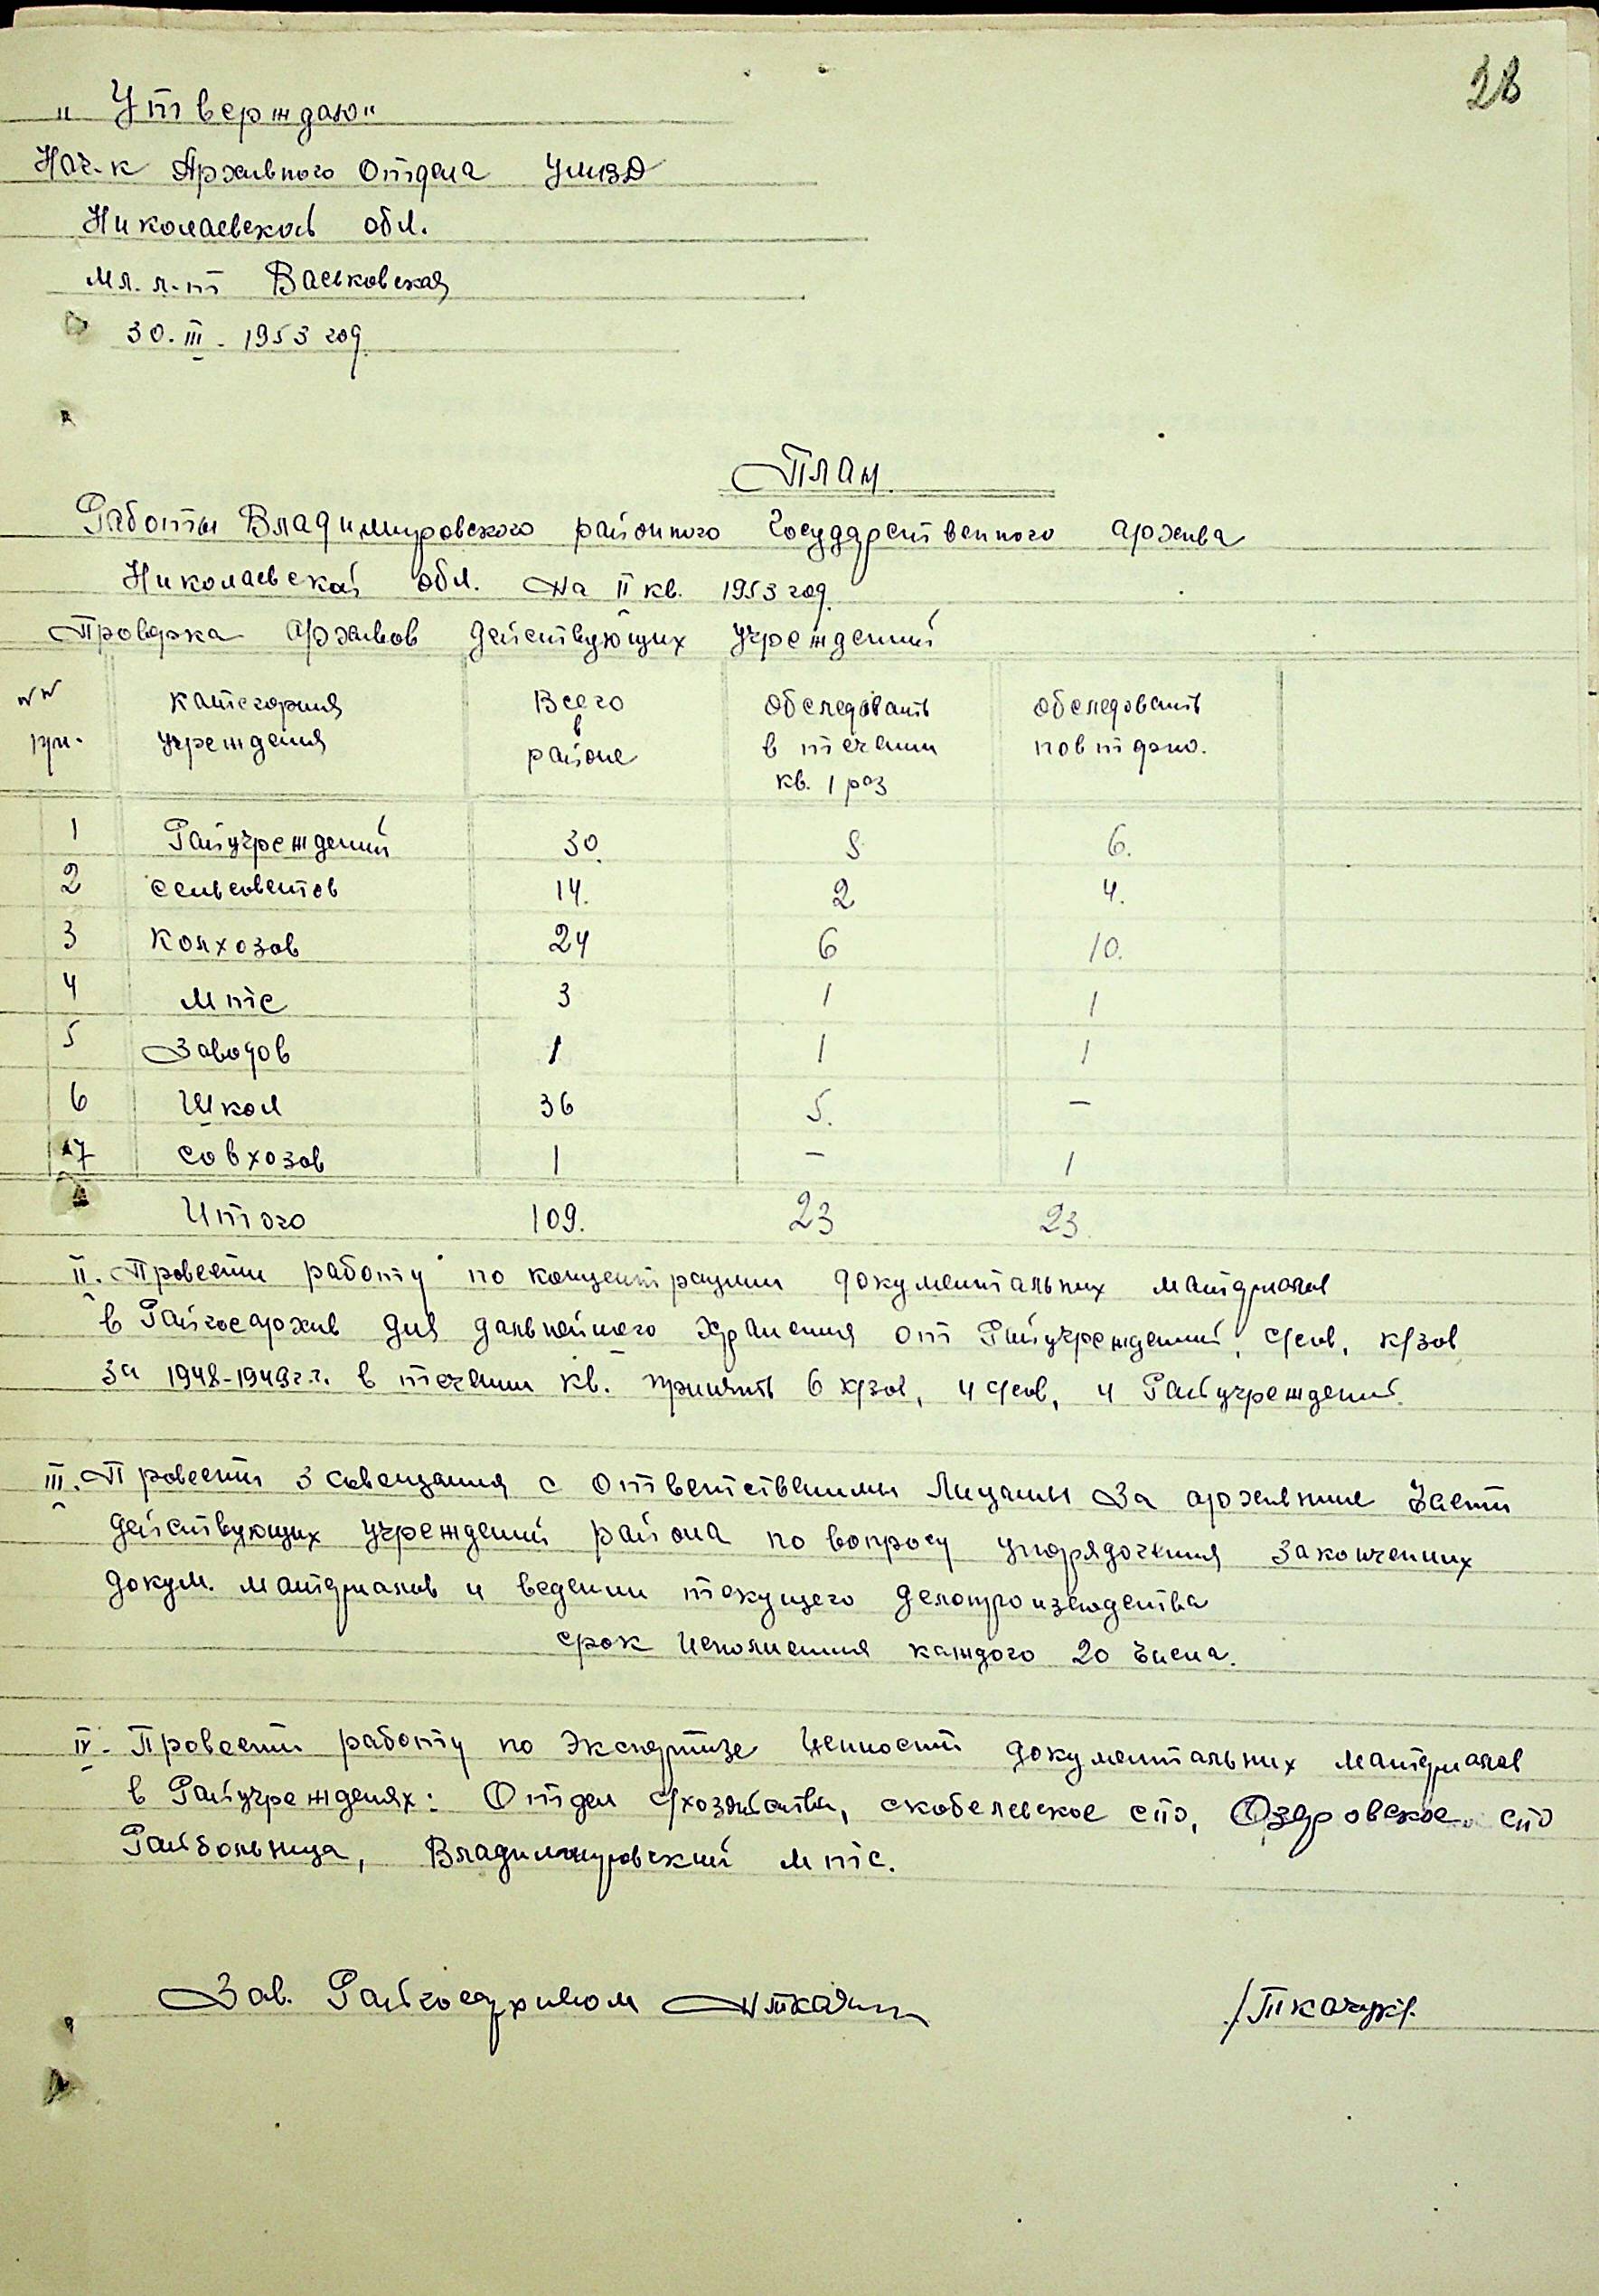 28
"Утверждаю"
Нач-к Архивного Отдела УМВД
Николаевской обл.
мл. л-т Васьковская
30.III. 1953 год.
План
Работы Владимировского районного Государственного архива
Николаевской обл. на II кв. 1953 год.
Проверка архивов действующих учреждений
№№ категория Всего Обследовать обследовать
пп. учреждения в районе в течении повторно.
кв. 1 раз
1 Райучреждений 30. 8 6.
2 сельсоветов 14. 2 4.
3 Колхозов 24 6 10.
4 МТС 3 1 1
5 Заводов 1 1 1
6 Школ 36 5. –
7 совхозов 1 – 1
Итого 109. 23 23
II. Провести работу по концентрации документальных материалов
в Райгосархив для дальнейшего хранения от Райучреждений, с/сов, к/зов
за 1948-1949 г.г. в течении кв. принять 6 к/зов, 4 с/сов, 4 Райучреждений.
III. Провести 3 совещания с ответственными Лицами За архивные части
действующих учреждений района по вопросу упорядочения законченных
докум. материалов и ведении текущего делопроизводства
срок исполнения каждого 20 числа.
IV. Провести работу по Экспертизе Ценности документальных материалов
в Райучрежденях: Отдел с/хозяйства, скобелевское СПО, Озеровское СПО
Райбольница, Владимировский МТС.
Зав. Райгосархивом /Ткачук/.